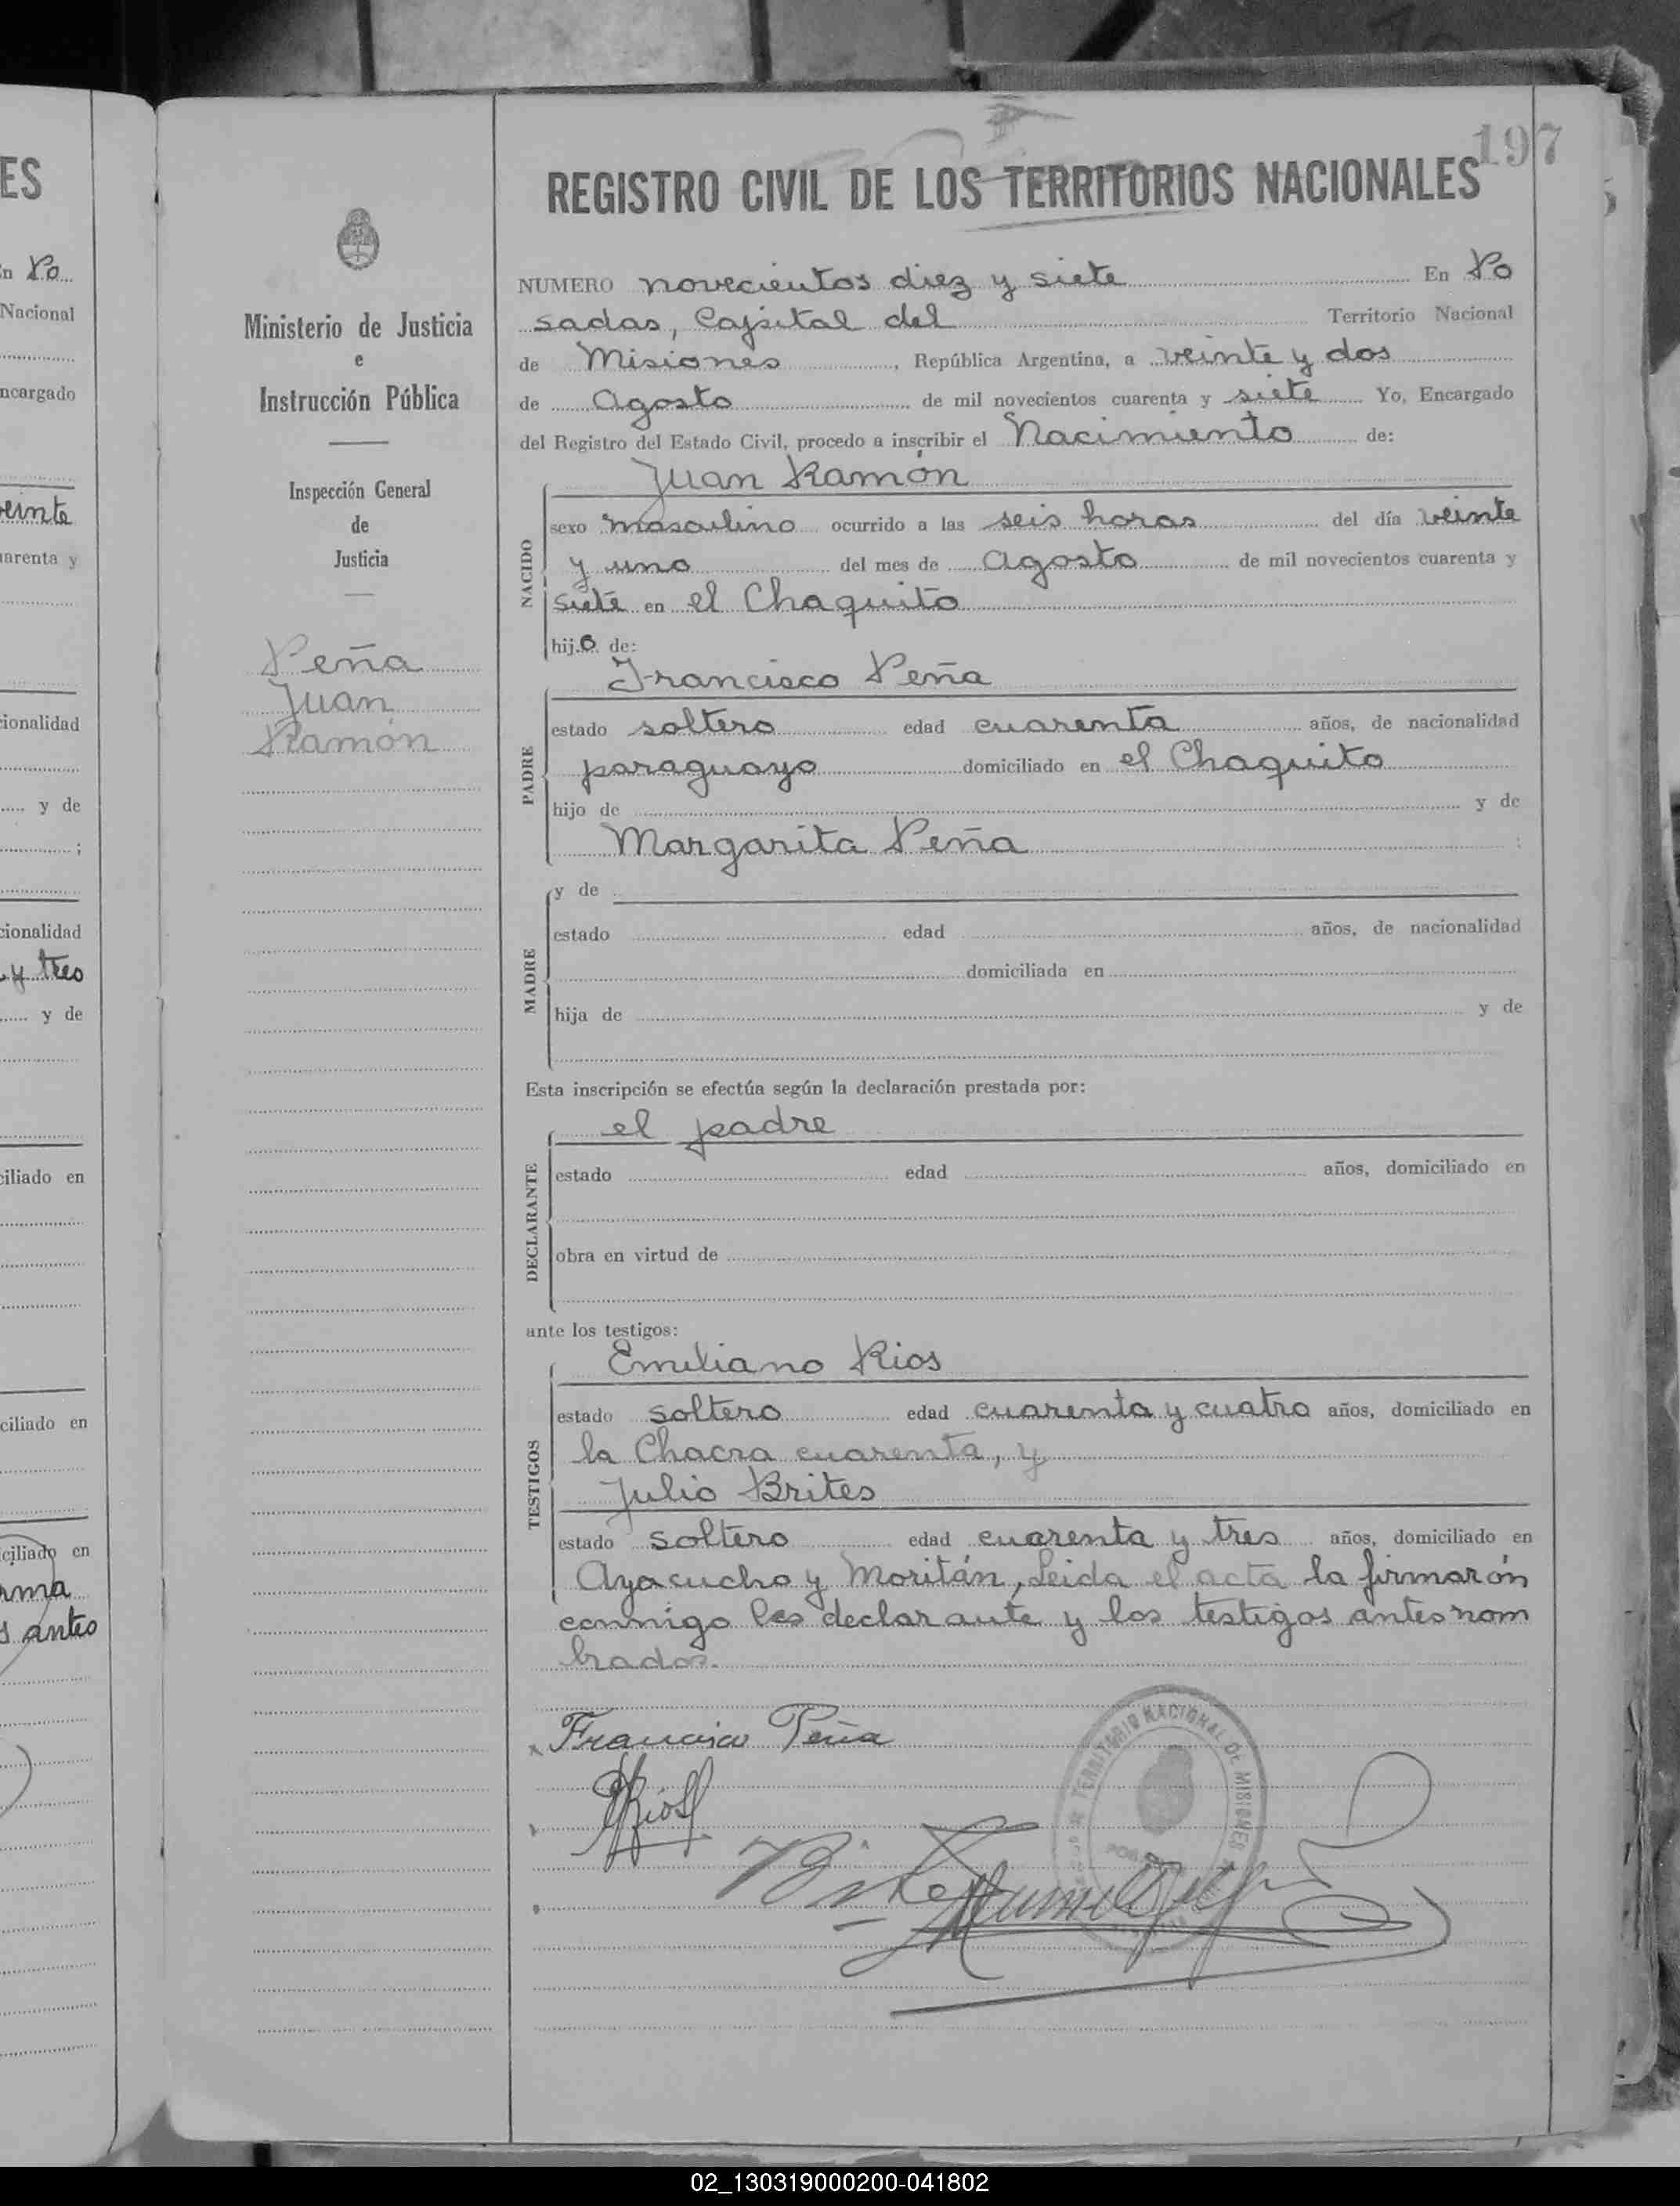 ES
n Po
Nacional
ncargado
veinte
arenta y
cionalidad
y de
;
cionalidad
y tres
y de
ciliado en
ciliado en
ciliado en
rma
s antes
197
REGISTRO CIVIL DE LOS TERRITORIOS NACIONALES
Ministerio de Justicia
e
Instrucción Pública
Inspección General
de
Justicia
Peña
Juan
Ramón
NUMERO novecientos diez y siete En Po
sadas, Capital del Territorio Nacional
de Misiones, República Argentina, a veinte y dos
de Agosto de mil novecientos cuarenta y siete Yo, Encargado
del Registro del Estado Civil, procedo a inscribir el Nacimiento de:
NACIDO
Juan Ramón
sexo masculino ocurrido a las seis horas del día veinte
y uno del mes de Agosto de mil novecientos cuarenta y
siete en el Chaquito
hijo de:
PADRE
Francisco Peña
estado soltero edad cuarenta años, de nacionalidad
paraguayo domiciliado en el Chaquito
hijo de y de
Margarita Peña ;
MADRE
y de
estado edad años, de nacionalidad
domiciliada en
hija de y de
Esta inscripción se efectúa según la declaración prestada por:
DECLARANTE
el padre
estado edad años, domiciliado en
obra en virtud de
ante los testigos:
TESTIGOS
Emiliano Rios
estado soltero edad cuarenta y cuatro años, domiciliado en
la Chacra cuarenta, y
Julio Brites
estado soltero edad cuarenta y tres años, domiciliado en
Ayacucho y Moritán, Leida el acta la firmarón
conmigo les declarante y los testigos antes nom
brados.
Francisco Peña
Rios
Brites
TERRITORIO NACIONAL DE MISIONES
02_130319000200-041802